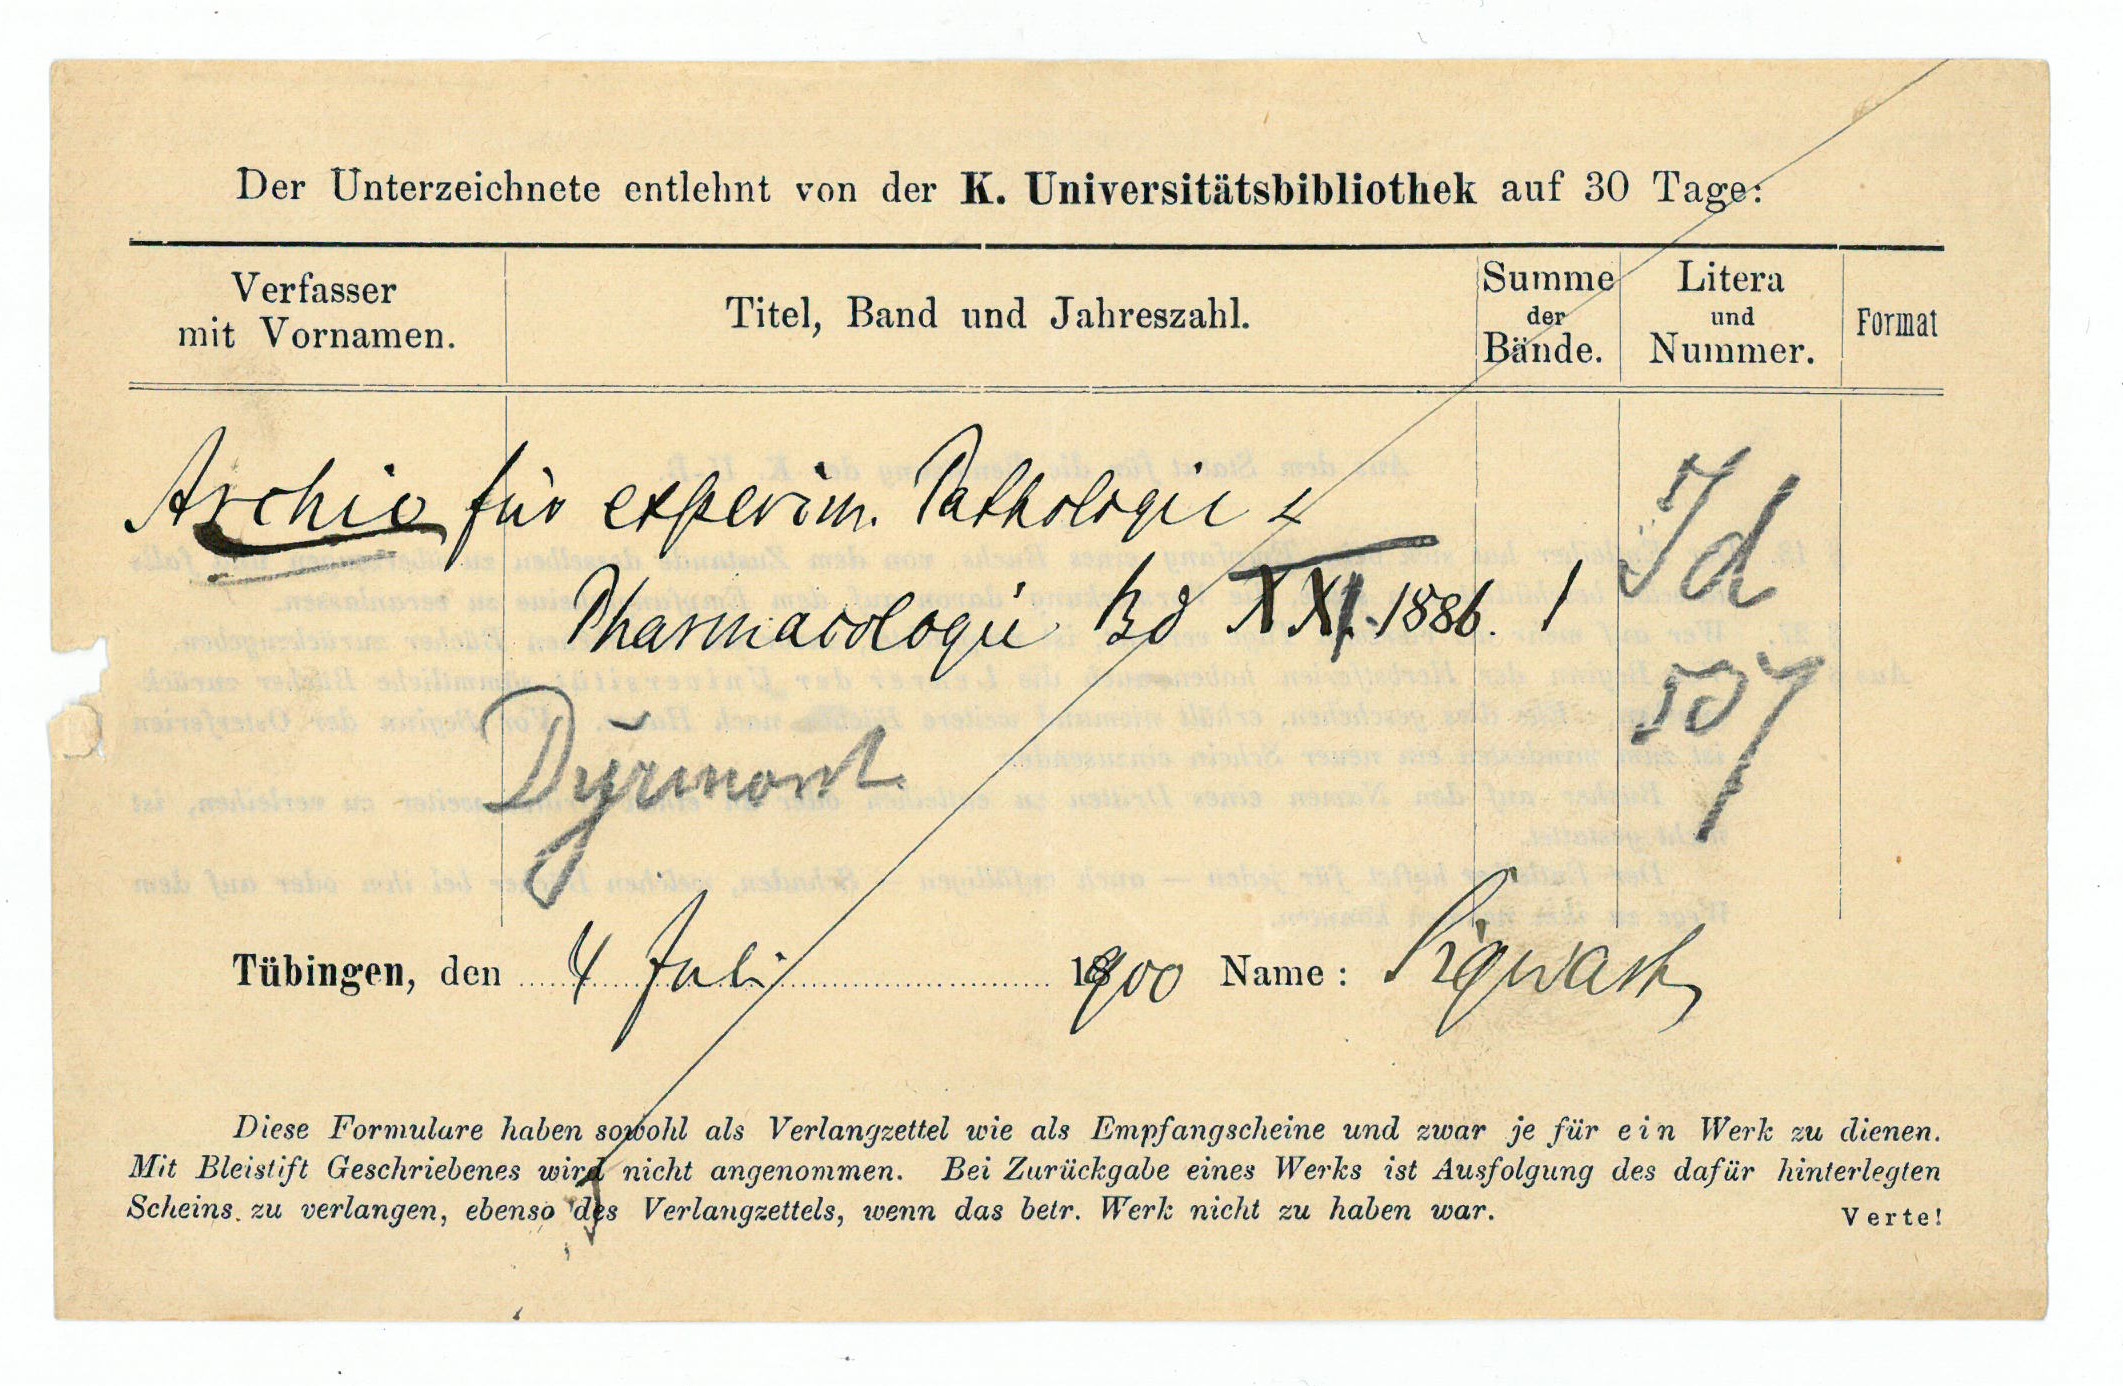 Der Unterzeichnete entlehnt von der K. Universitätsbibliothek auf 30 Tage:
Verfasser
mit Vornamen.
Titel, Band und Jahreszahl.
Summe
der
Bände.
Litera
und
Nummer.
Format
Archiv für experim. Pathologie &
Pharmacologie Bd XXI. 1886. 1
Id
507
Dyrmont
Tübingen, den 4 Juli 1900 Name: Sigwart
Diese Formulare haben sowohl als Verlangzettel wie als Empfangscheine und zwar je für ein Werk zu dienen.
Mit Bleistift Geschriebenes wird nicht angenommen. Bei Zurückgabe eines Werks ist Ausfolgung des dafür hinterlegten
Scheins zu verlangen, ebenso des Verlangzettels, wenn das betr. Werk nicht zu haben war.
Verte!